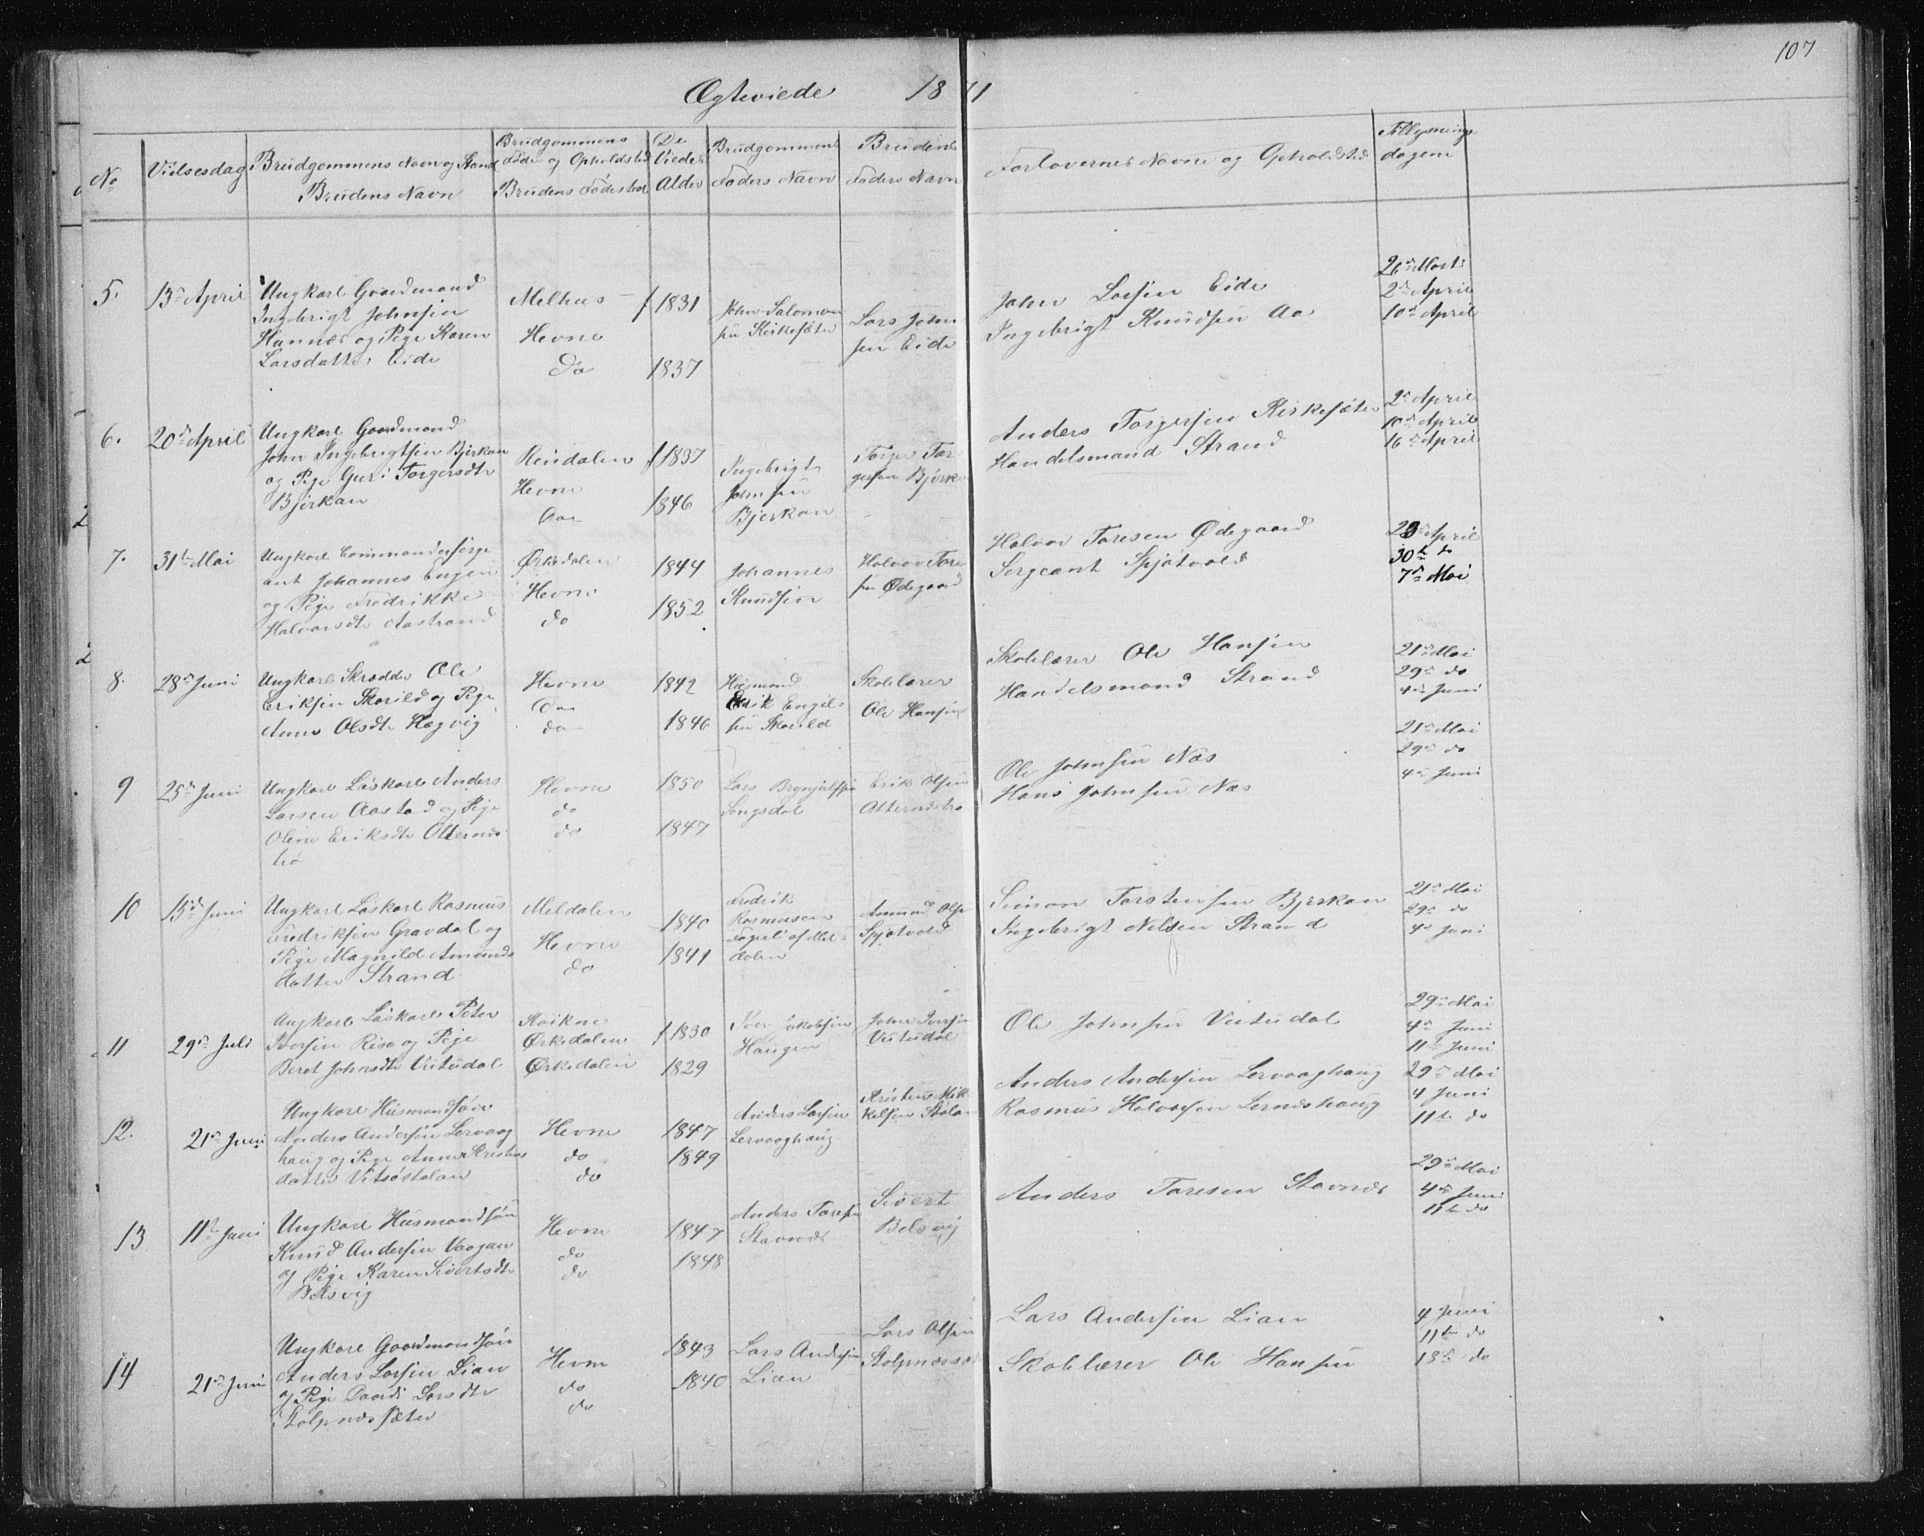 107
Ægteviede 1871
No
Vielsesdag
Brudgommens Navn og Stand
Brudens Navn
Brudgommens
Føde og Opholdsted
Brudens Fødested
De
Viedes
Alder
Brudgommens
Faders Navn
Brudens
Faders Navn
Forlovernes Navne og Opholdsted
Tillysnings
dagene
5.
13de April
Ungkarl Gaardmand
Ingebrigt Johnsen
Hannæs og Pige Karen
Larsdatter Eide
Melhus
Hevne
do
1831
1837
John Salomon
sen Kirkesæter
Lars John
sen Eide
John Larsen Eide
Ingebrigt Knudsen Aa
26de Marts
2den April
10de April
6.
20de April
Ungkarl Gaardmand
John Ingebrigtsen Bjerkan
og Pige Guri Torgersdtr
Bjerkan
Rindalen
Hevne
1837
1846
Ingebrigt
Johnsen
Bjerkan
Torger Tor
gersen Bjerk
Anders Torgersen Kirkesæter
Handelsmand Strand
2den April
10de April
16de April
7.
31te Mai
Ungkarl Commandersérge
ant Johannes Engen
og Pige Fredrikke
Halvorsdtr Aastrand
Ørkedalen
Hevne
do
1844
1852
Johannes
Knudsen
Halvor Tore
sen Ødegaard
Halvor Toresen Ødegaard
Sergeant Spjøtvold
23de April
30te do
7de Mai
8.
28de Juni
Ungkarl Skrædder Ole
Eriksen Skarild og Pige
Anne Olsdtr Hagvig
Hevne
do
1842
1846
Husmand
Erik Engels
sen Skarild
Skolelærer
Ole Hansen
Skolelærer Ole Hansen
Handelsmand Strand
21de Mai
29de do
4de Juni
9
25de Juni
Ungkarl Løskarl Anders
Larsen Aastad og Pige
Oline Eriksdtr Otternes
trø
Hevne
do
do
1850
1847
Lars Brynjulfsen
Songsdal
Erik Olsen
Otternestrø
Ole Johnsen Næs
Hans Johnsen Næs
21de Mai
29de do
4de Juni
10
15de Juni
Ungkarl Løskarl Rasmus
Fredriksen Gravdal og
Pige Magnild Amunds
datter Strand
Meldalen
Hevne
do
1840
1841
Fredrik
Rasmusen
af Mel
dalen
Amund Olse
Spjøtvold
Simon Torstensen Bjerkan
Ingebrigt Nelsen Strand
21de Mai
29de do
4de Juni
11
29de Juli
Ungkarl Løskarl Peter
Iversen Risa og Pige
Beret Johnsdtr Vutudal
Ørkedalen
Ørkedalen
1830
1829
Iver Jakobsen
Haugen
John Iversen
Vutudal
Ole Johnsen Vutudal
29de Mai
4de Juni
11te Juni
12.
21de Juni
Ungkarl Husmandsøn
Anders Andersen Lervaag
haug og Pige Anne Kristens
datter Vitsøstølan
Hevne
do
do
1847
1849
Anders Larsen
Lervaaghaug
Kristen Mik
kelsen Stølan
Anders Andersen Lervaaghaug
Rasmus Halvorsen Lerneshaug
29de Mai
4 Juni
11te do
13
11te Juni
Ungkarl Husmandsøn
Knud Andersen Vaagan
og Pige Karen Sivertsdtr
Belsvig
Hevne
do
do
1847
1848
Anders Toresen
Stavnes
Sivert
Belsvig
Anders Toresen Stavnes
29de Mai
4de Juni
11te do
14
21de Juni
Ungkarl Gaardmandsøn
Anders Larsen Lian
og Pige Daardi Larsdtr
Stolpnessæter
Hevne
do
do
1843
1840
Lars Andersen
Lian
Lars Olsen
Stolpnessæ
Lars Andersen Lian
Skolelærer Ole Hansen
4 Juni
11te do
18de do